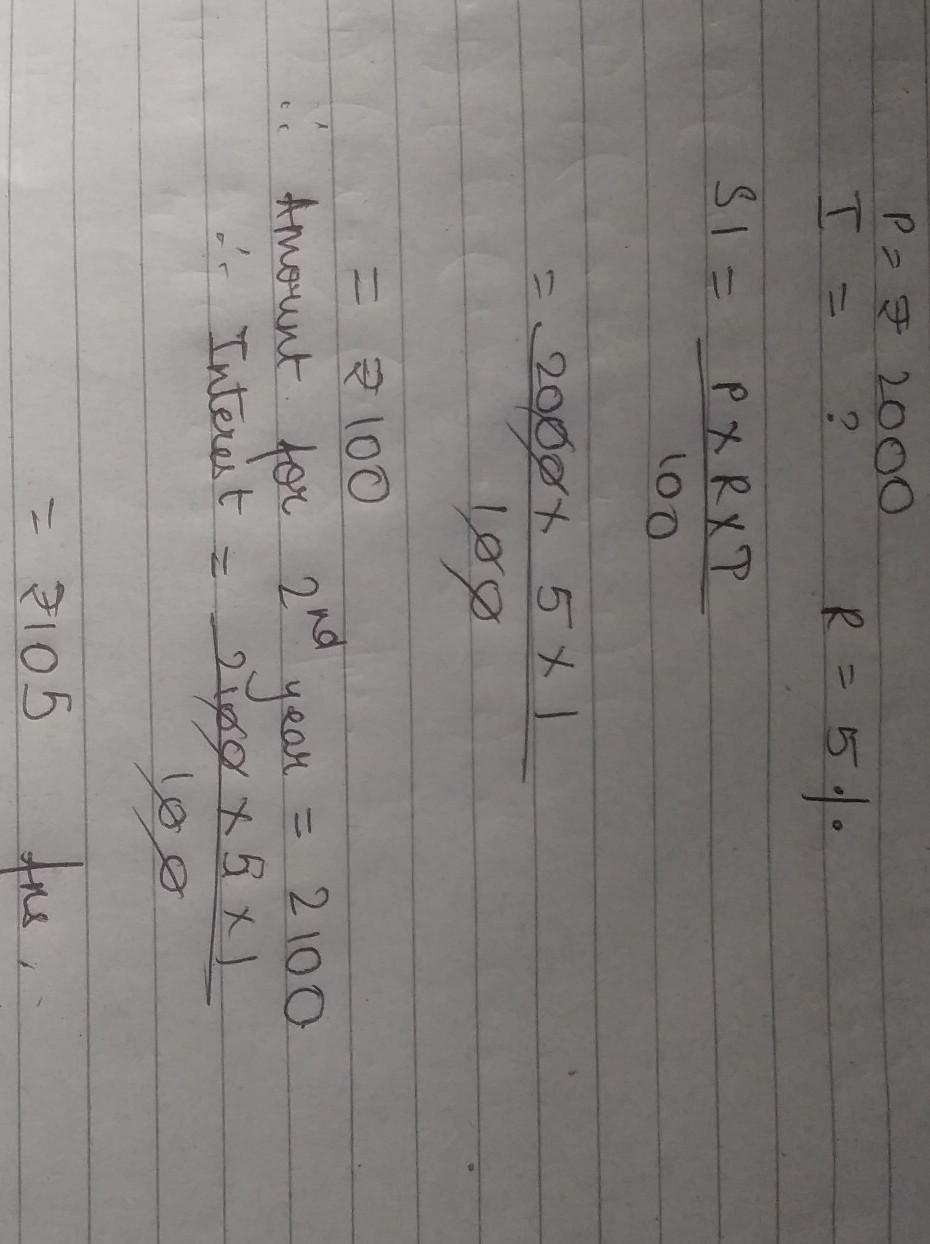 P = ₹ 2000
T = ? R = 5 %
SI = P x R x T
100
= 2000 x 5 x 1
100
= ₹ 100
∴ Amount for 2nd year = 2100
∴ Interest = 2100 x 5 x 1
100
= ₹105 Ans.